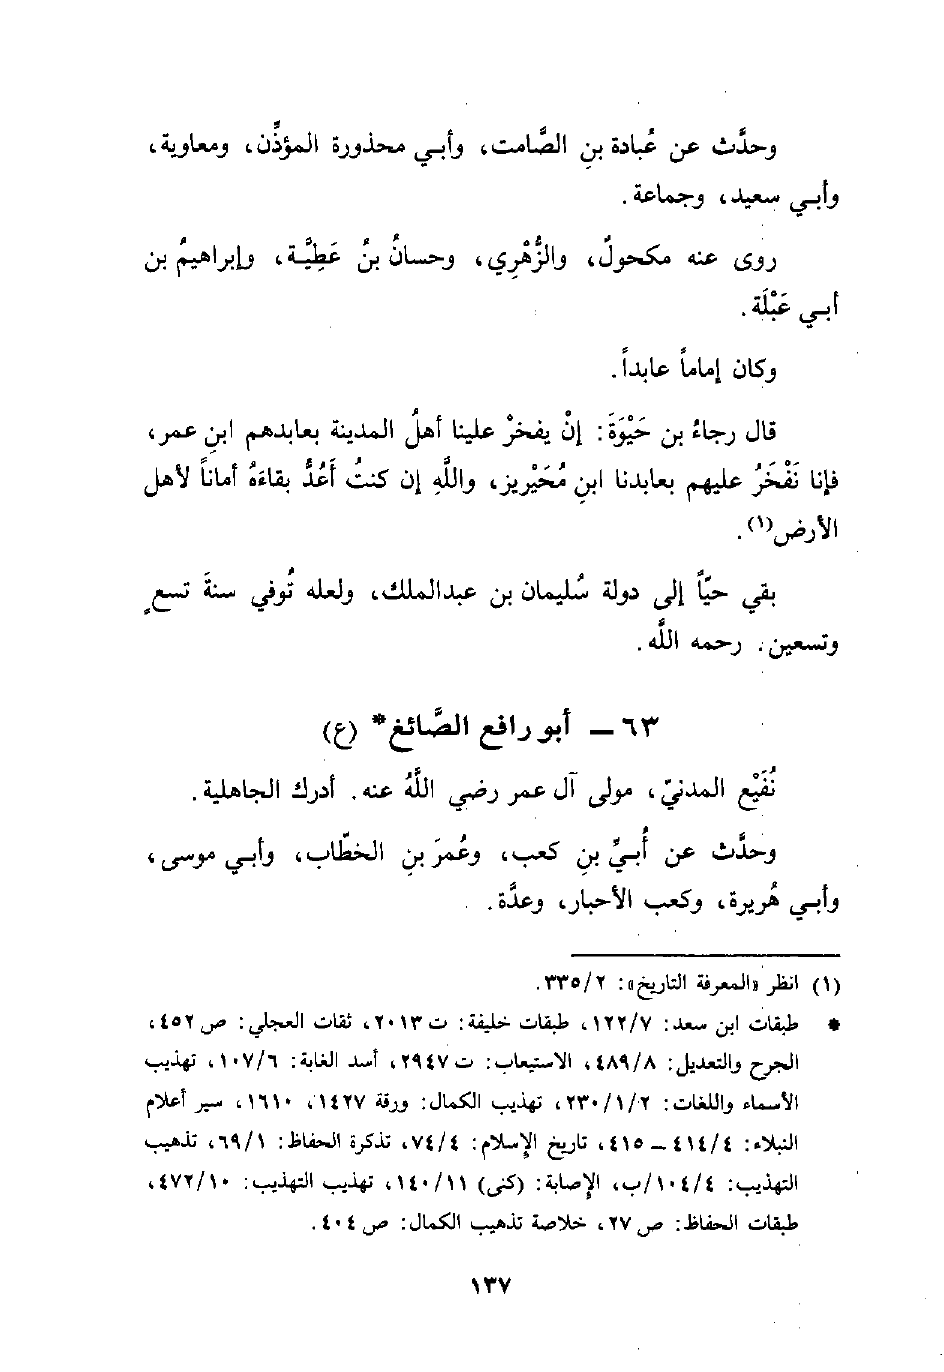 وحدَّث عن عُبادة بنِ الصَّامت، وأبي محذورة المؤذِّن، ومعاوية،
وأبي سعيد، وجماعة.
روى عنه مكحولٌ، والزُّهْرِي، وحسانُ بنُ عَطِيَّة، وإبراهيمُ بن
أبي عَبْلَة.
وكان إماماً عابداً.
قال رجاءُ بن حَيْوَةَ: إنْ يفخرْ علينا أهلُ المدينة بعابدهم ابنِ عمر،
فإنا نَفْخَرُ عليهم بعابدنا ابنِ مُحَيْريز، واللَّهِ إن كنتُ أَعُدُّ بقاءَهُ أماناً لأهل
الأرض(١).
بقي حيّاً إلى دولة سُليمان بن عبدالملك، ولعله تُوفي سنةَ تسعٍ
وتسعين. رحمه اللَّه.
٦٣ – أبو رافع الصَّائغ* (ع)
نُفَيْع المدنيّ، مولى آل عمر رضي اللَّهُ عنه. أدرك الجاهلية.
وحدَّث عن أُبيِّ بنِ كعب، وعُمرَ بنِ الخطّاب، وأبي موسى،
وأبي هُريرة، وكعب الأحبار، وعدَّة.
(١) انظر «المعرفة التاريخ»: ٣٣٥/٢.
* طبقات ابن سعد: ١٢٢/٧، طبقات خليفة: ت ٢٠١٣، ثقات العجلي: ص ٤٥٢،
الجرح والتعديل: ٤٨٩/٨، الاستيعاب: ت ٢٩٤٧، أسد الغابة: ١٠٧/٦، تهذيب
الأسماء واللغات: ٢٣٠/١/٢، تهذيب الكمال: ورقة ١٤٢٧، ١٦١٠، سير أعلام
النبلاء: ٤١٤/٤ – ٤١٥، تاريخ الإسلام: ٧٤/٤، تذكرة الحفاظ: ٦٩/١، تذهيب
التهذيب: ١٠٤/٤/ب، الإصابة: (كنى) ١٤٠/١١، تهذيب التهذيب: ٤٧٢/١٠،
طبقات الحفاظ: ص ٢٧، خلاصة تذهيب الكمال: ص ٤٠٤.
١٣٧